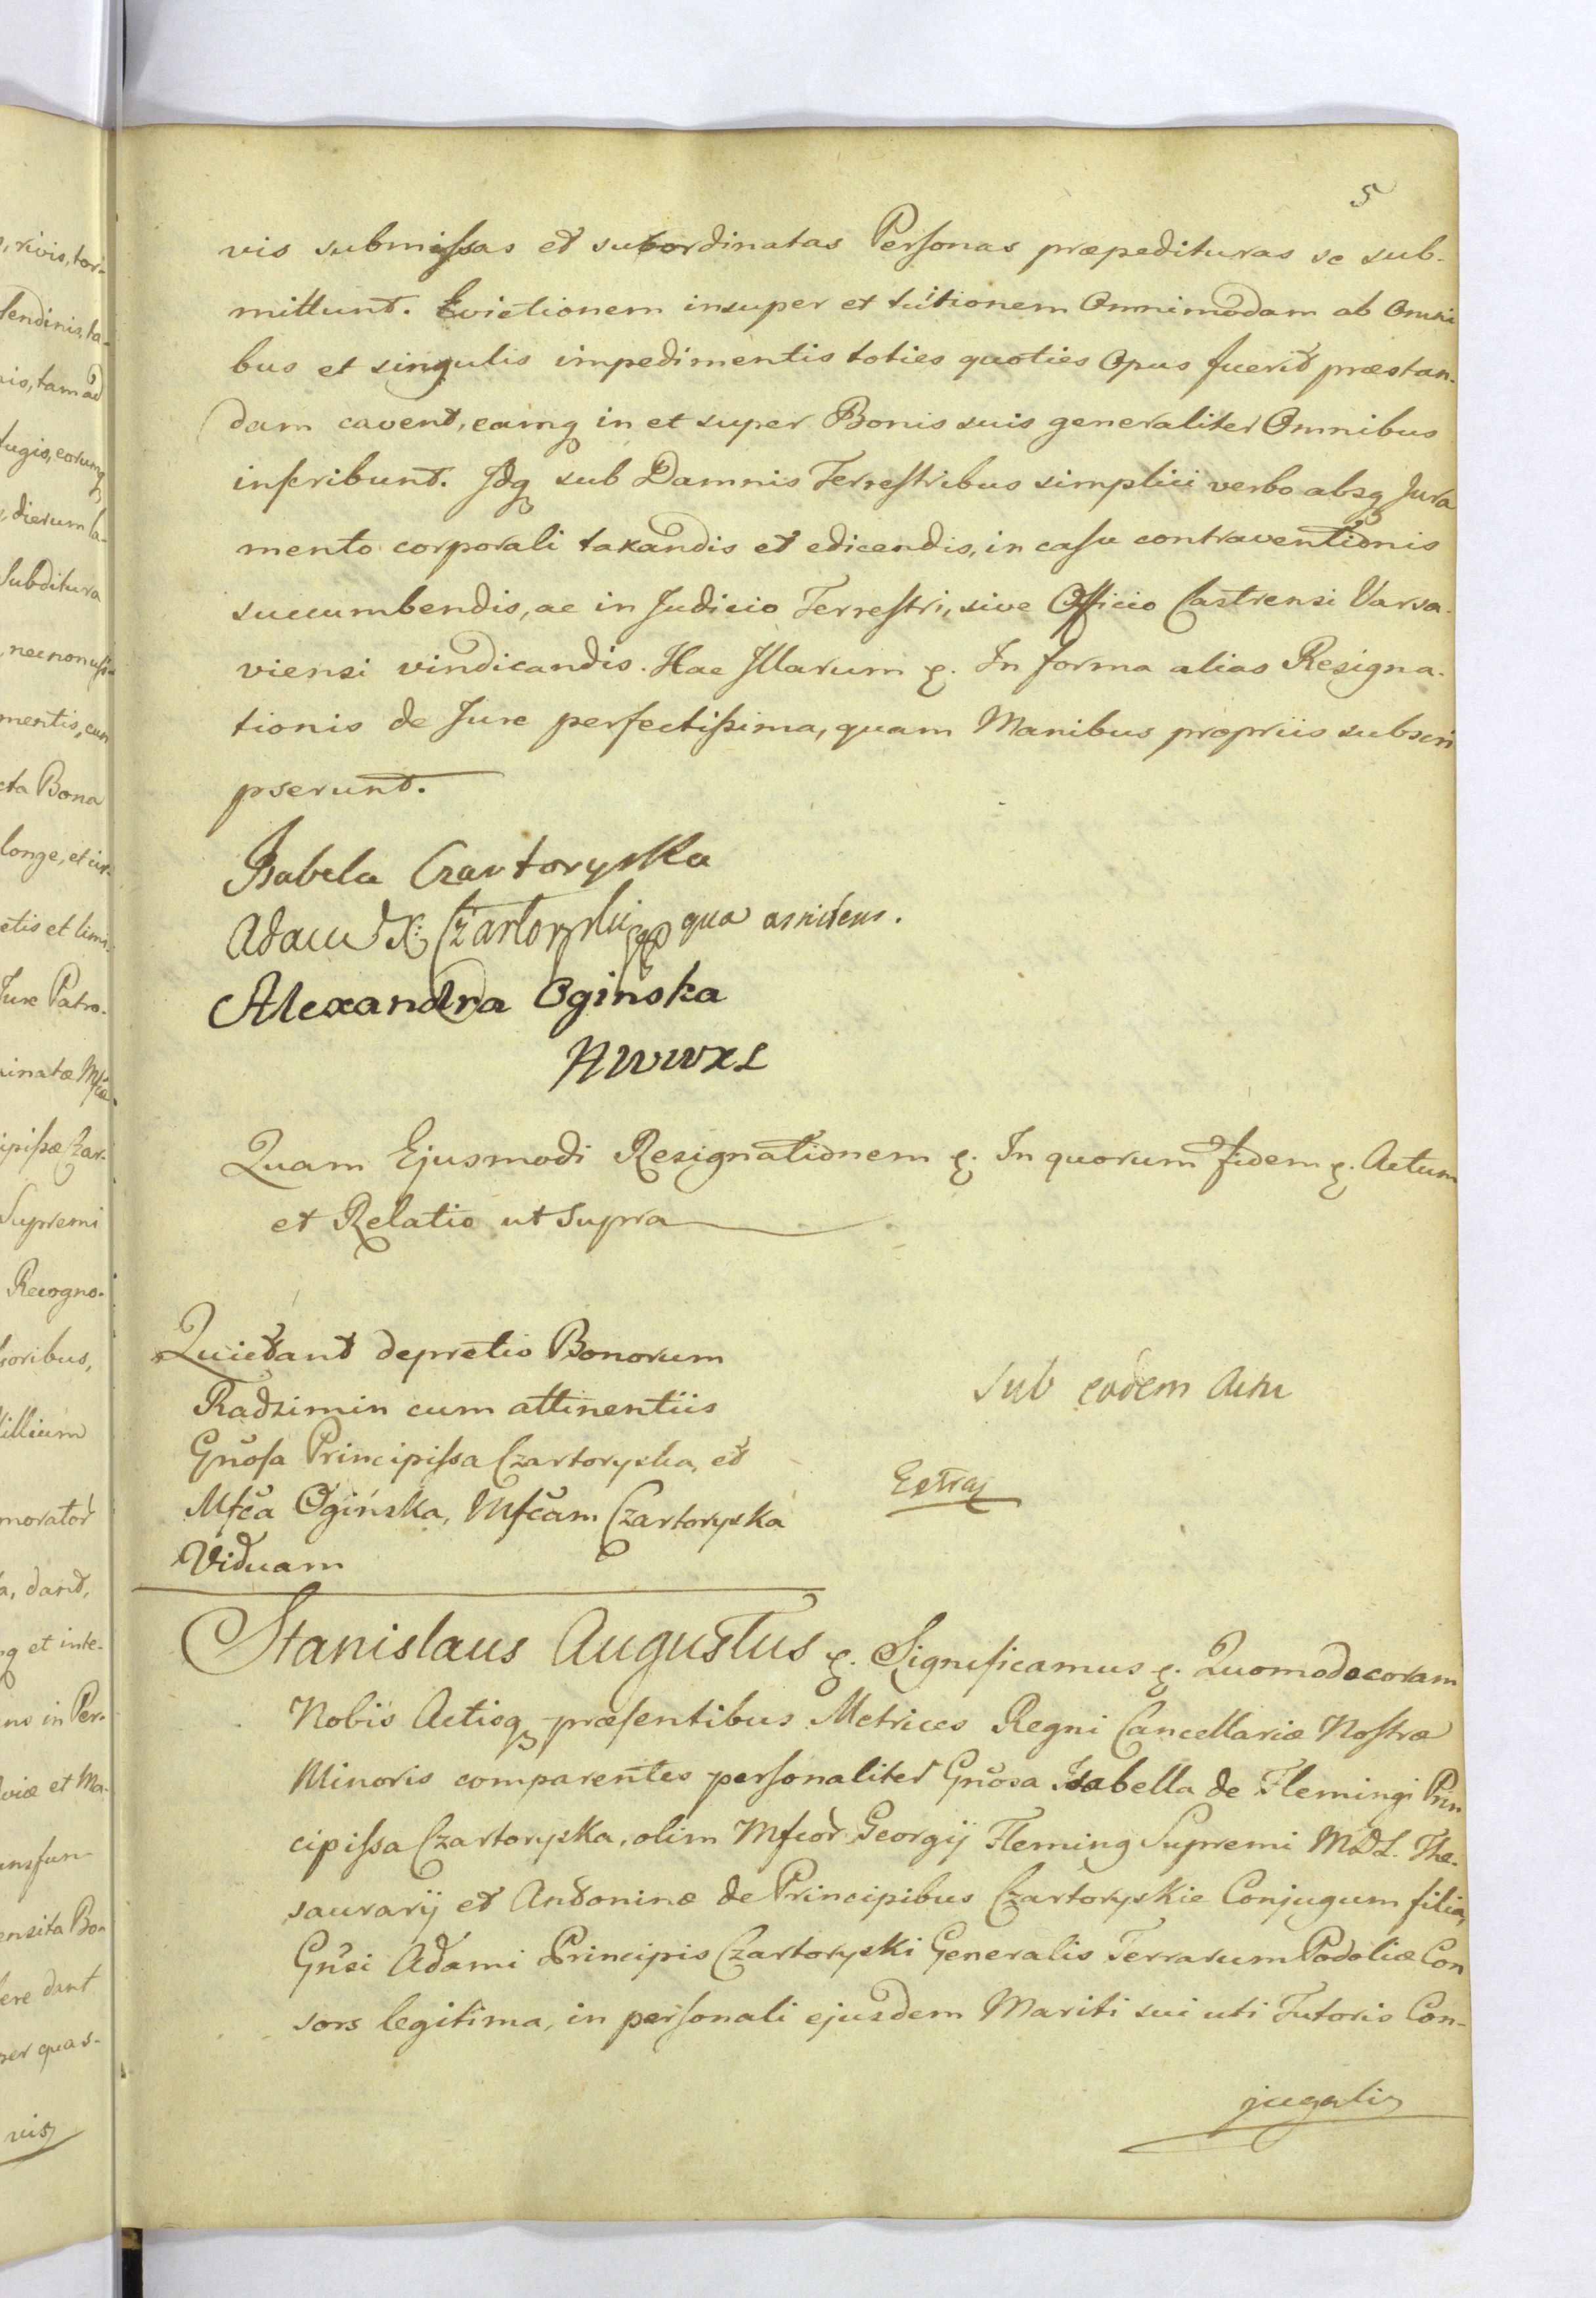 5
vis submissas et subordinatas Personas præpedituras se sub-
mittunt. Evictionem insuper et tuitionem Omnimodam ab Omni
bus et singulis impedimentis toties quoties Opus fuerit præstan-
dam cavent, eamq in et super Bonis suis generaliter Omnibus
inscribunt. Idq sub Damnis Terrestribus simplici verbo absq Jura
mento corporali taxandis et edicendis, in casu contraventionis
succumbendis, ac in Judicio Terrestri, sive Officio Castrensi Varsa-
viensi vindicandis. Hac Illarum p. In forma alias Resigna-
tionis de Jure perfectissima, quam Manibus propriis subscri
pserunt.
Isabela Czartoryska
Adam X: Czartoryski qua assistens.
Alexandra Oginska
HWWXL
Quam Ejusmodi Resignationem p. In quorum fidem p. Actum
et Relatio ut Supra
Quietant de pretio Bonorum
Radzimin cum attinentiis
Gnosa Principissa Czartoryska, et
Mfca Ogińska, Mfcam Czartoryska
Viduam
Sub eodem Actu
Extra
Stanislaus Augustus p. Significamus p. Quomodo coram
Nobis Actisq præsentibus Metrices Regni Cancellariæ Nostræ
Minoris comparentes personaliter Gnosa Isabella de Flemingi Prin
cipissa Czartoryska, olim Mfcor Georgij Fleming Supremi MDL. The-
saurarij et Antoninæ de Principibus Czartoryskie Conjugum filia,
Gnsi Adami Principis Czartoryski Generalis Terrarum Podoliæ Con
sors legitima, in personali ejusdem Mariti sui uti Tutoris Con-
jugalis